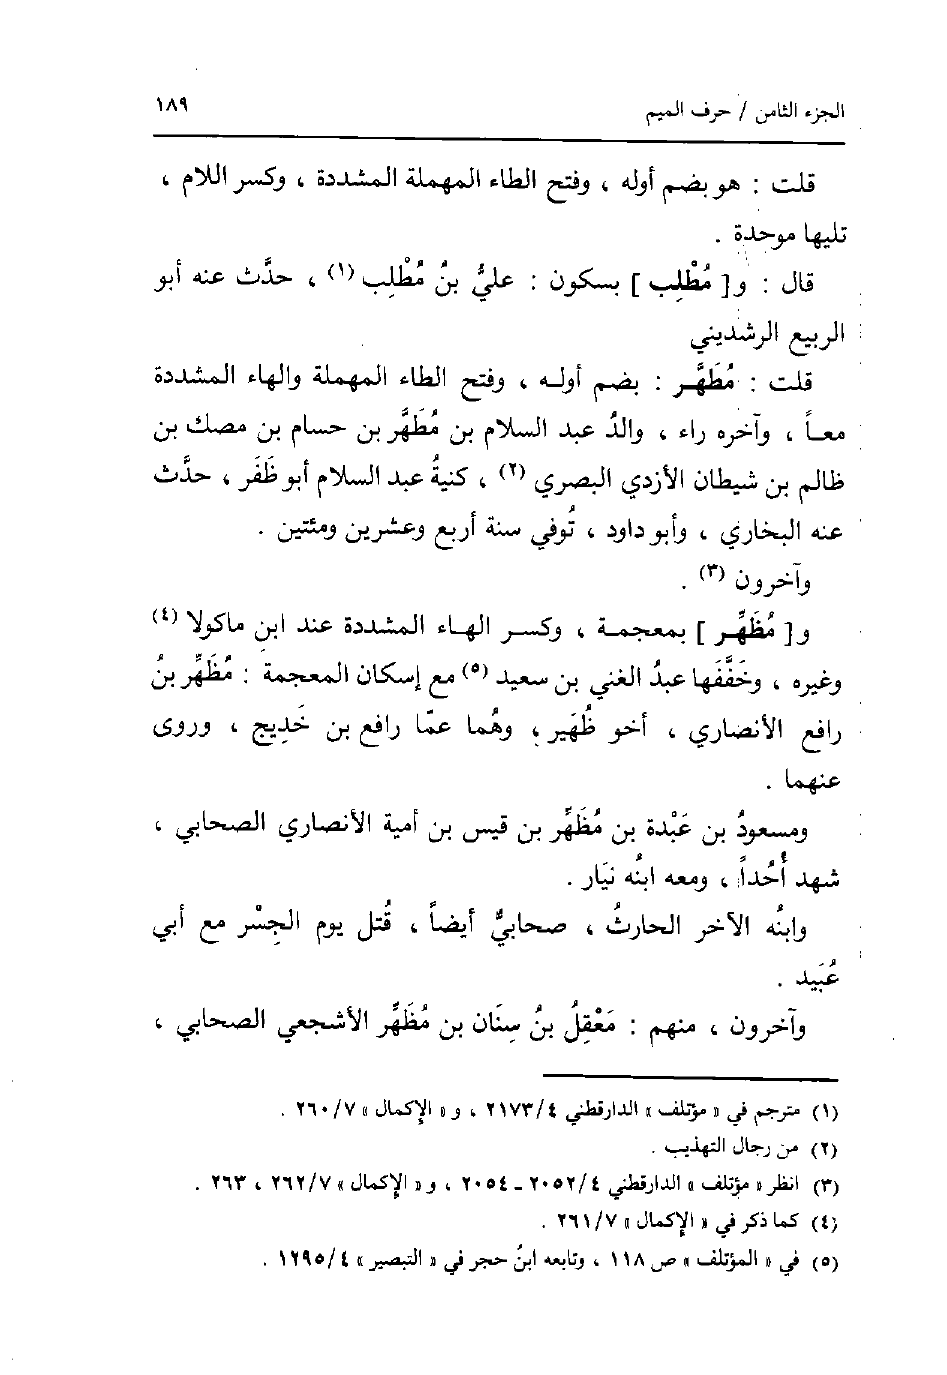 الجزء الثامن / حرف الميم ١٨٩
قلت : هو بضم أوله ، وفتح الطاء المهملة المشددة ، وكسر اللام ،
تليها موحدة .
قال : و[ مُطْلِب ] بسكون : عليُّ بنُ مُطْلِب (١) ، حدَّث عنه أبو
الربيع الرشديني
قلت : مُطَهَّر : بضم أوله ، وفتح الطاء المهملة والهاء المشددة
معاً ، وآخره راء ، والدُ عبد السلام بن مُطَهَّر بن حسام بن مصك بن
ظالم بن شيطان الأزدي البصري (٢) ، كنيةُ عبد السلام أبو ظَفَر ، حدَّث
عنه البخاري ، وأبو داود ، تُوفي سنة أربع وعشرين ومئتين .
وآخرون (٣) .
و[ مُظَهِّر ] بمعجمة ، وكسر الهاء المشددة عند ابن ماكولا (٤)
وغيره ، وخَفَّفَها عبدُ الغني بن سعيد (٥) مع إسكان المعجمة : مُظَهِّر بنُ
رافع الأنصاري ، أخو ظُهَير ، وهُما عمّا رافع بن خَدِيج ، وروى
عنهما .
ومسعودُ بن عَبْدة بن مُظَهِّر بن قيس بن أمية الأنصاري الصحابي ،
شهد أُحُداً ، ومعه ابنُه نيَار .
وابنُه الآخر الحارثُ ، صحابيٌّ أيضاً ، قُتل يوم الجِسْر مع أبي
عُبَيد .
وآخرون ، منهم : مَعْقِلُ بنُ سِنَان بن مُظَهِّر الأشجعي الصحابي ،
(١) مترجم في « مؤتلف » الدارقطني ٢١٧٣/٤ ، و« الإكمال » ٢٦٠/٧ .
(٢) من رجال التهذيب .
(٣) انظر « مؤتلف » الدارقطني ٢٠٥٢/٤ ـ ٢٠٥٤ ، و« الإكمال » ٢٦٢/٧ ، ٢٦٣ .
(٤) كما ذكر في « الإكمال » ٢٦١/٧ .
(٥) في « المؤتلف » ص ١١٨ ، وتابعه ابنُ حجر في « التبصير » ١٢٩٥/٤ .